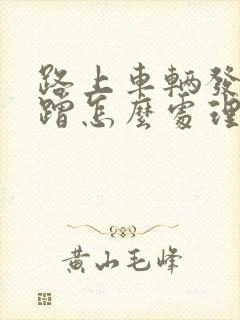 路上車輛發
蹭怎麼處理
黄山毛峰